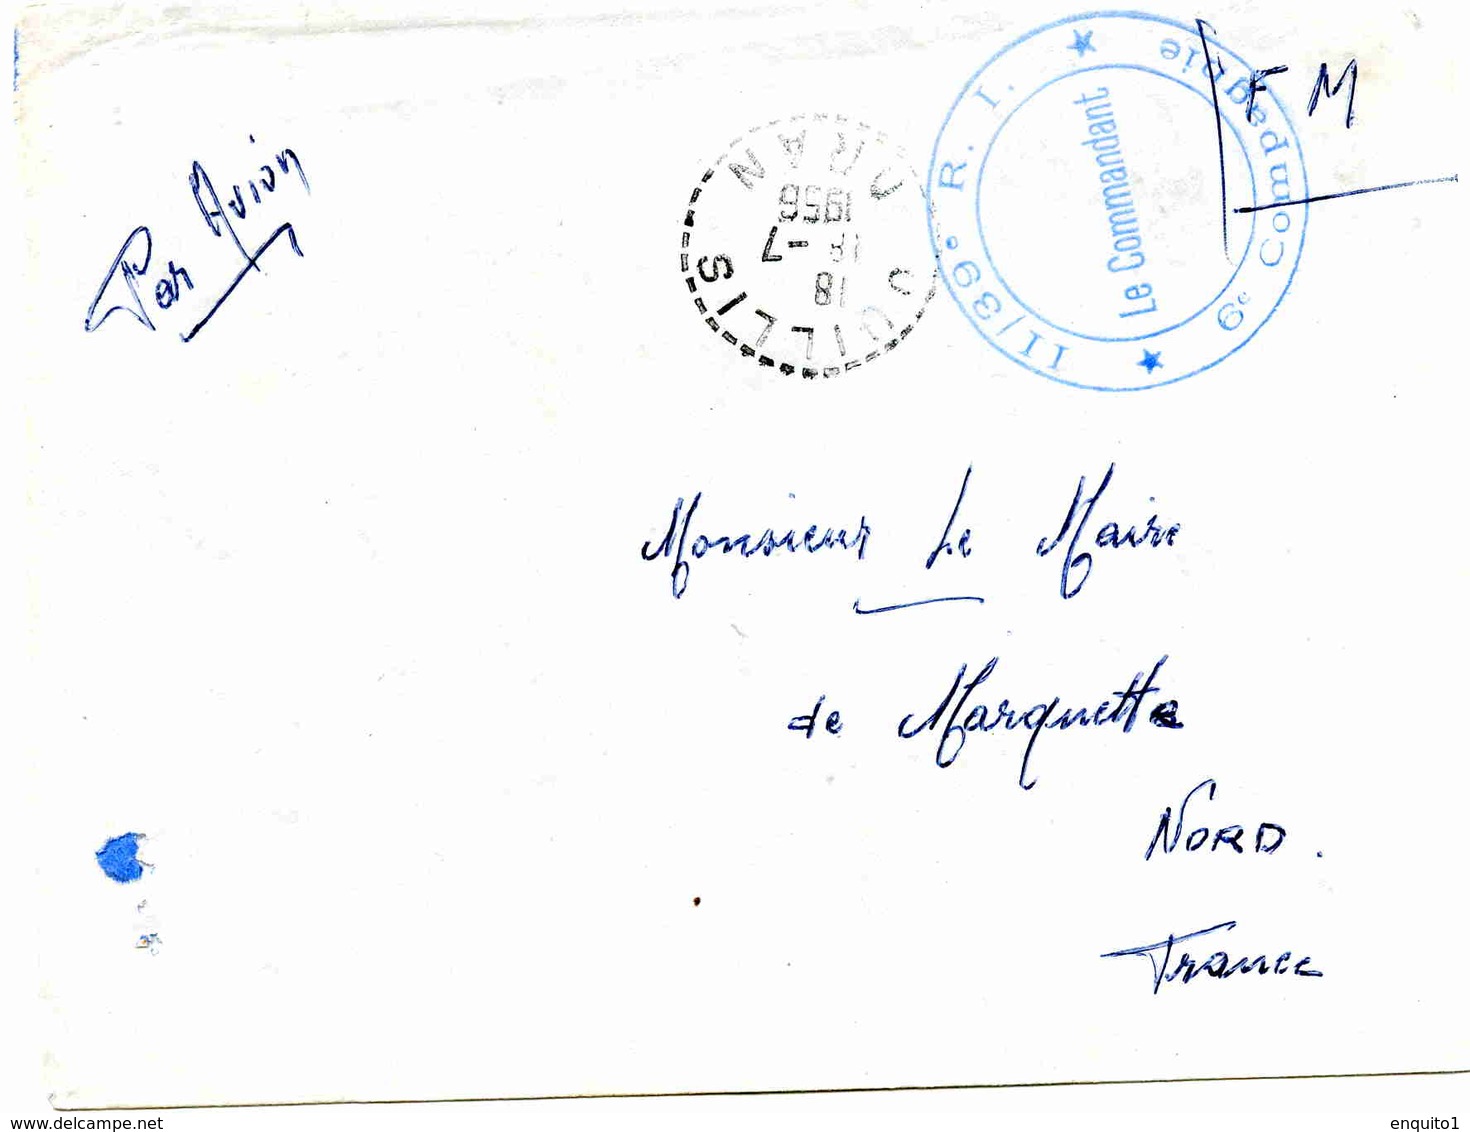 Par Avion
F M
II/39e R. I.
6e Compagnie
Le Commandant
ORAN
18
18 -7
1956
Monsieur Le Maire
de Marquette
NORD.
France
www.delcampe.net
enquito1